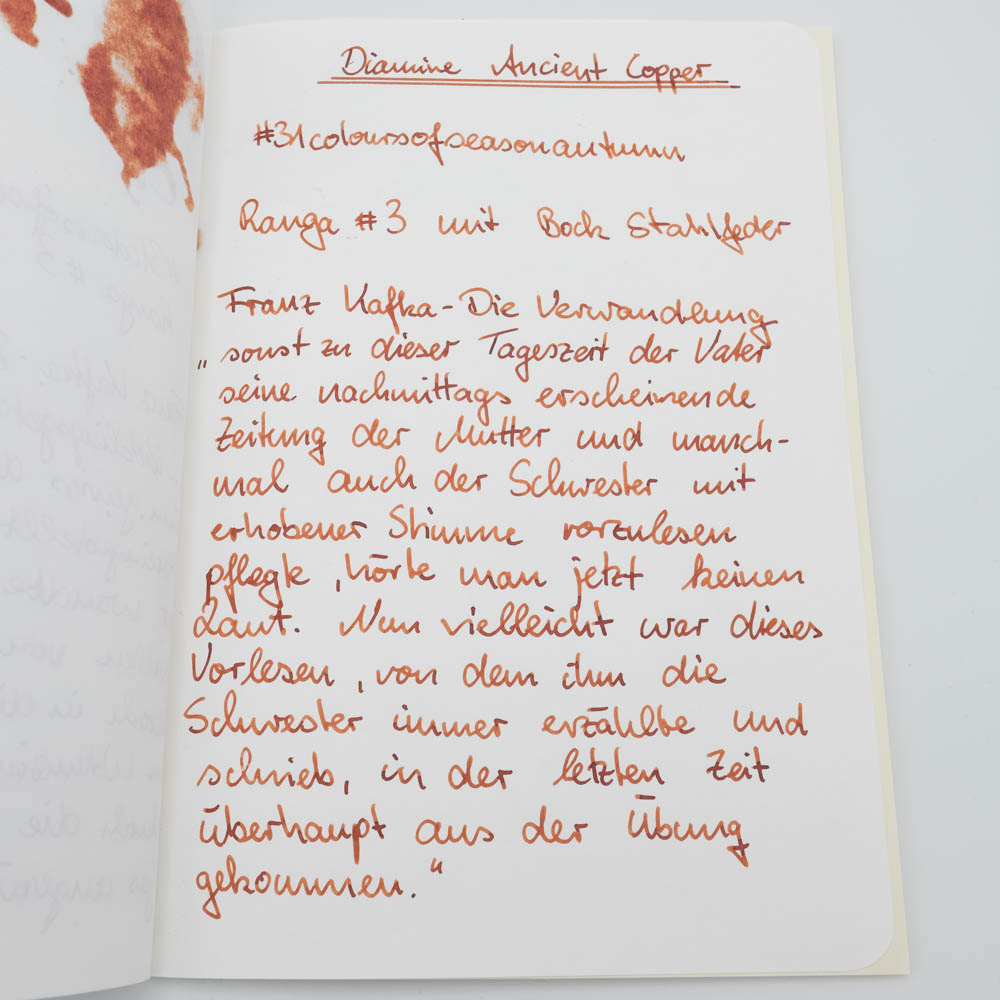 Diamine Ancient Copper
#31coloursofseasonautumn
Ranga #3 mit Bock Stahlfeder
Franz Kafka - Die Verwandlung
„sonst zu dieser Tageszeit der Vater
seine nachmittags erscheinende
Zeitung der Mutter und manch-
mal auch der Schwester mit
erhobener Stimme vorzulesen
pflegte, hörte man jetzt keinen
Laut. Nun vielleicht war dieses
Vorlesen, von dem ihm die
Schwester immer erzählte und
schrieb, in der letzten Zeit
überhaupt aus der Übung
gekommen."